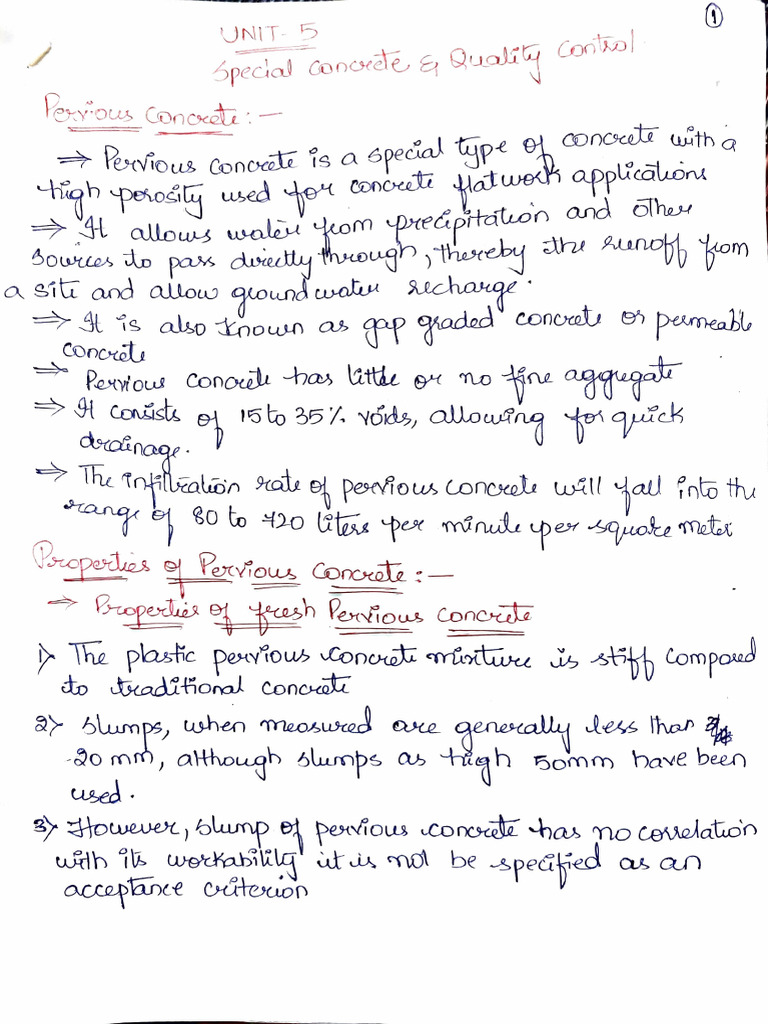 1
UNIT-5
Special Concrete & Quality Control
Pervious Concrete:-
⇒ Pervious concrete is a special type of concrete with a
high porosity used for concrete flatwork applications
⇒ It allows water from precipitation and other
sources to pass directly through, thereby the runoff from
a site and allow ground water recharge.
⇒ It is also known as gap graded concrete or permeable
concrete
⇒ Pervious concrete has little or no fine aggregate
⇒ It consists of 15 to 35% voids, allowing for quick
drainage.
⇒ The infiltration rate of pervious concrete will fall into the
range of 80 to 720 liters per minute per square meter
Properties of Pervious Concrete:-
⇒ Properties of fresh Pervious concrete
1) The plastic pervious concrete mixture is stiff compared
to traditional concrete
2) Slumps, when measured are generally less than
20 mm, although slumps as high 50mm have been
used.
3) However, slump of pervious concrete has no correlation
with its workability it is not be specified as an
acceptance criterion